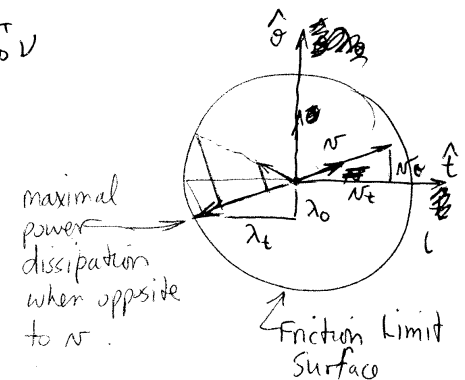 ô
v
v
v_o
t̂
v_t
λ_o
λ_t
maximal
power
dissipation
when opposite
to v.
Friction Limit
Surface